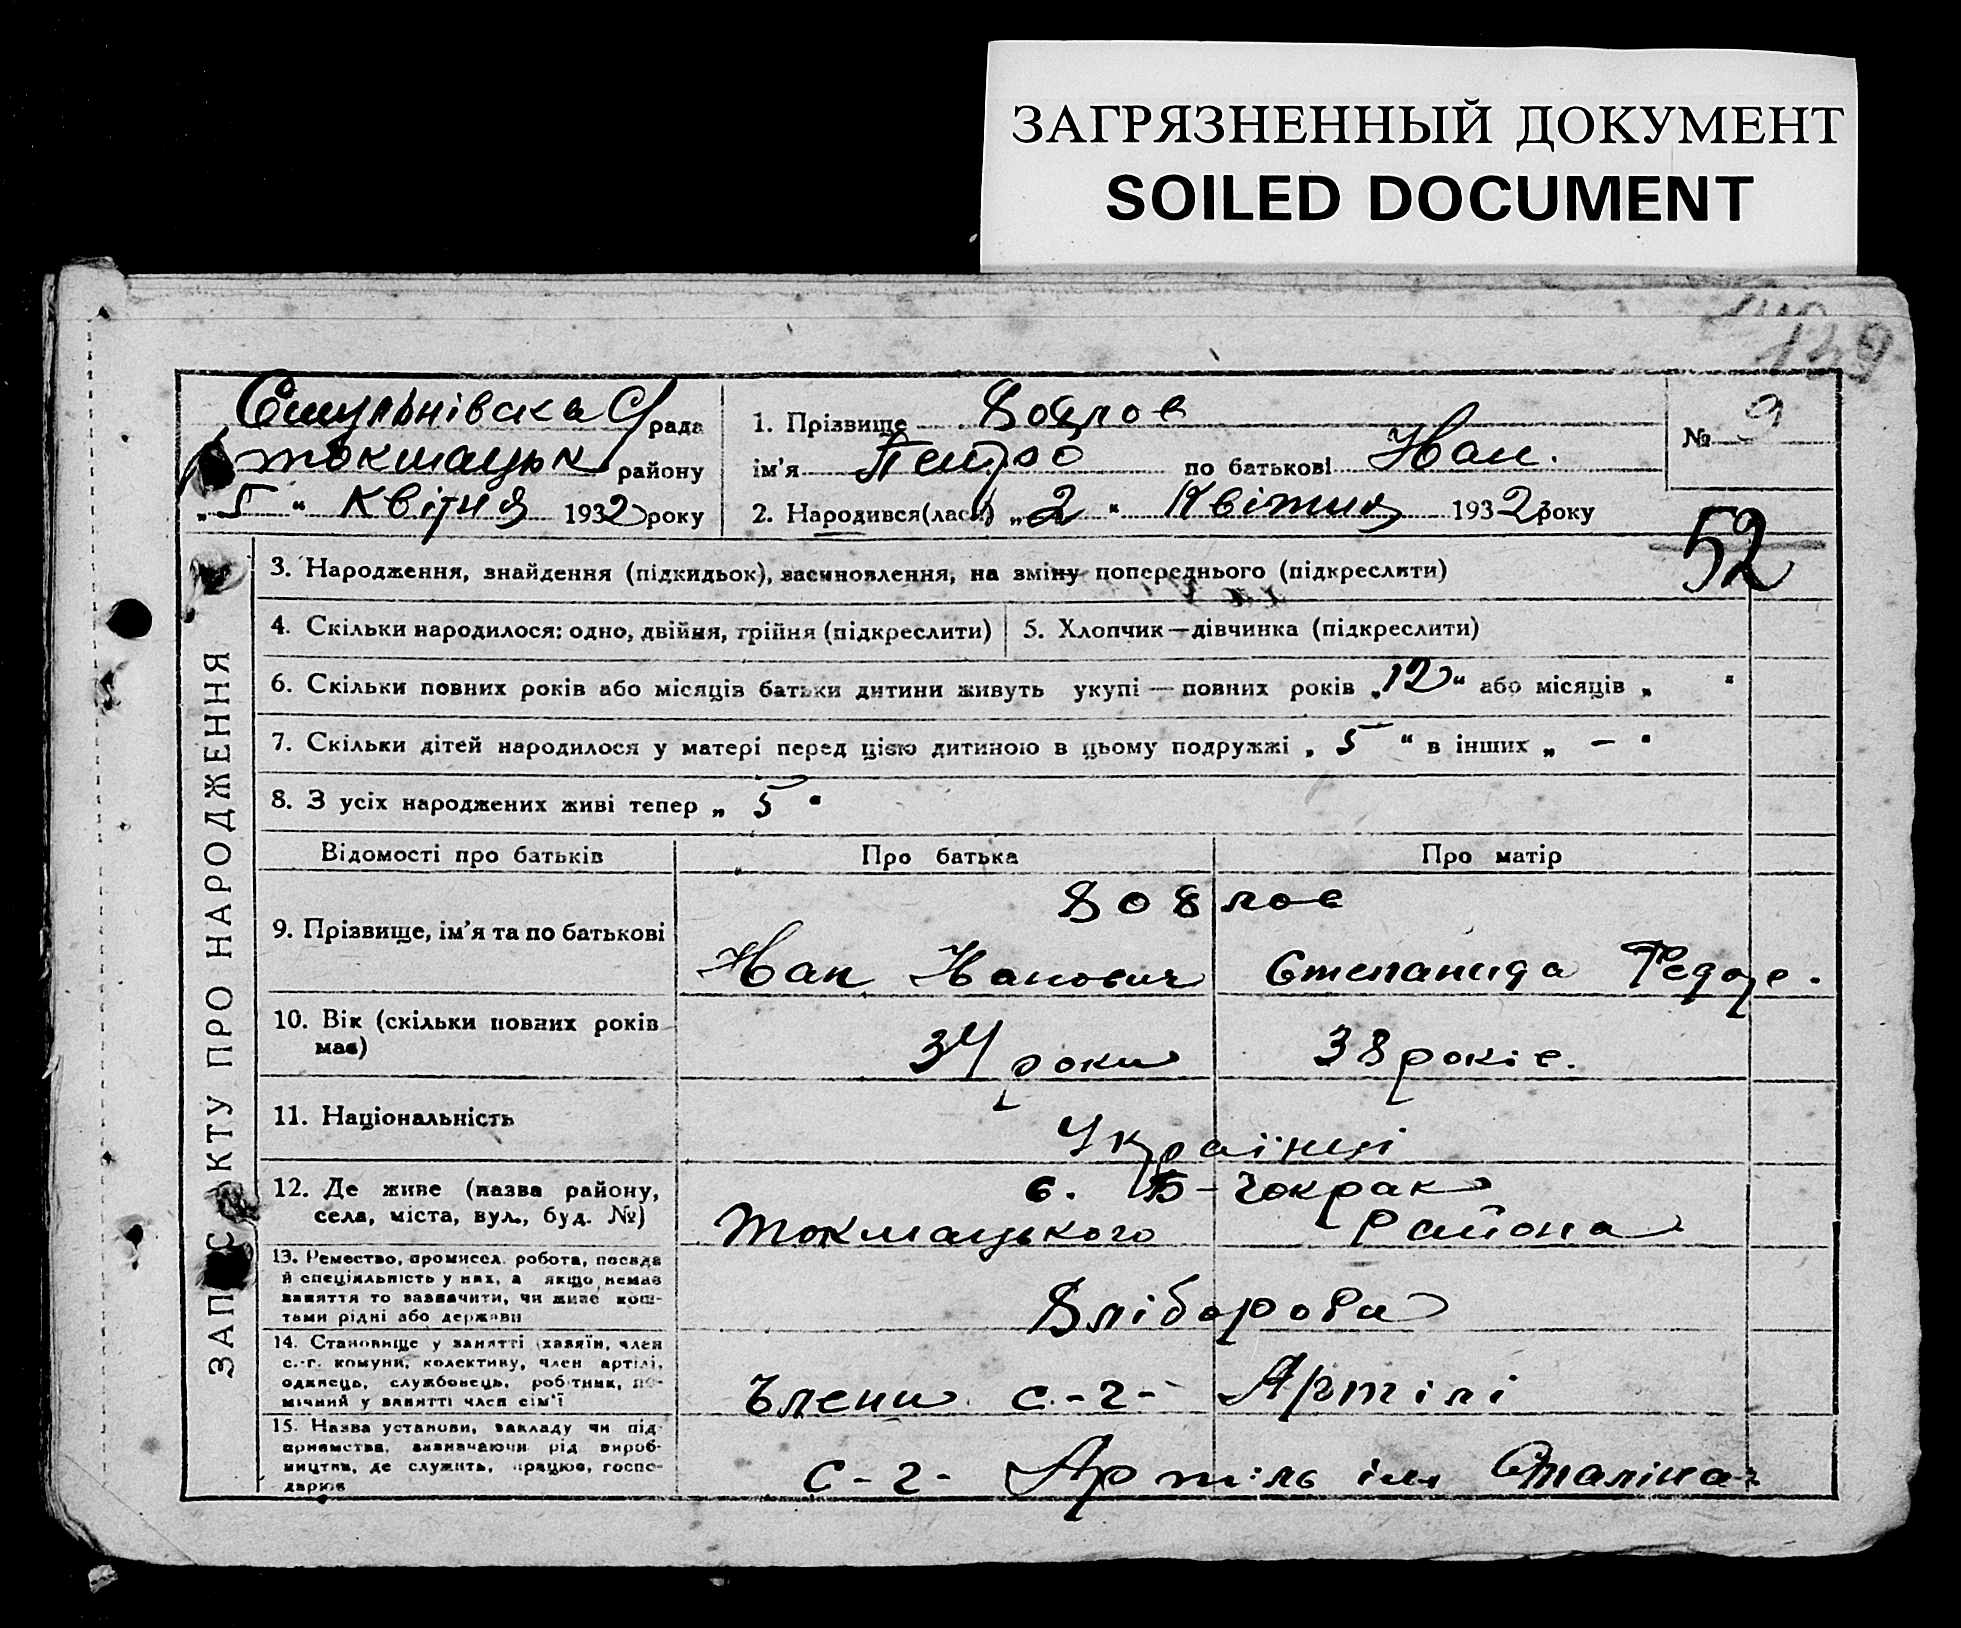 ЗАГРЯЗНЕННЫЙ ДОКУМЕНТ
SOILED DOCUMENT
139
рада
Токмацьк району
„5“ Квітня 1932 року
1. Прізвище
ім'я Петро по батькові Иван.
2. Народився(лась) „2“ Квітня 1932 року
№ 9
52
ЗАПИС АКТУ ПРО НАРОДЖЕННЯ
3. Народження, знайдення (підкидьок), засиновлення, на зміну попереднього (підкреслити)
4. Скільки народилося: одно, двійня, трійня (підкреслити) 5. Хлопчик—дівчинка (підкреслити)
6. Скільки повних років або місяців батьки дитини живуть укупі — повних років „12“ або місяців „ “
7. Скільки дітей народилося у матері перед цією дитиною в цьому подружжі „5“ в інших „—“
8. З усіх народжених живі тепер „5“
Відомості про батьків Про батька Про матір
9. Прізвище, ім'я та по батькові
Иван Иванович Степанида Федор.
10. Вік (скільки повних років
має)
34 роки 38 років.
11. Національність
Українці
12. Де живе (назва району,
села, міста, вул., буд. №)
с. Б-Чокрак
Токмацького Района
13. Ремество, промисел, робота, посада
й спеціяльність у них, а якщо немає
заняття то зазначити, чи живе кош-
тами рідні або держави
Хлібороби
14. Становище у занятті (хазяїн, член
с.-г. комуни, колективу, член артілі,
одинець, службовець, робітник, по-
мічний у занятті член сім'ї
Члени с.-г- Артілі
15. Назва установи, закладу чи під-
приємства, зазначаючи рід вироб-
ництва, де служить, працює, госпо-
дарює
С-г- Артіль ім Сталіна